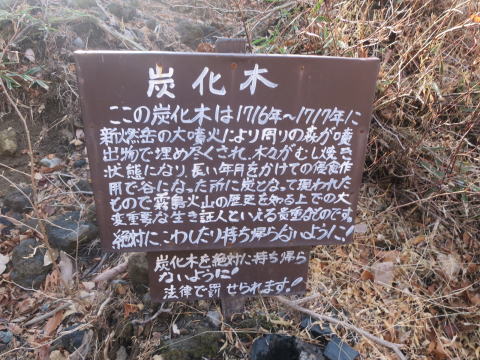 炭化木
この炭化木は1716年~1717年に
新燃岳の大噴火により周りの森が噴
出物で埋めつくされ、木々がむし焼き
状態になり、長い年月をかけての侵食作
用で谷になった所に炭となって現われた
もので霧島火山の歴史を知る上での大
変重要な生き証人といえる貴重なものです。
絶対にこわしたり持ち帰らないように!
炭化木を絶対に持ち帰ら
ないように!
法律で罰せられます。!